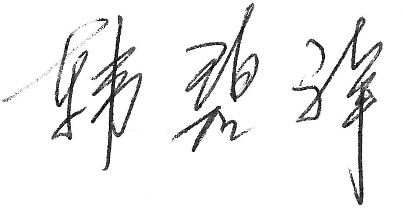 韩碧祥